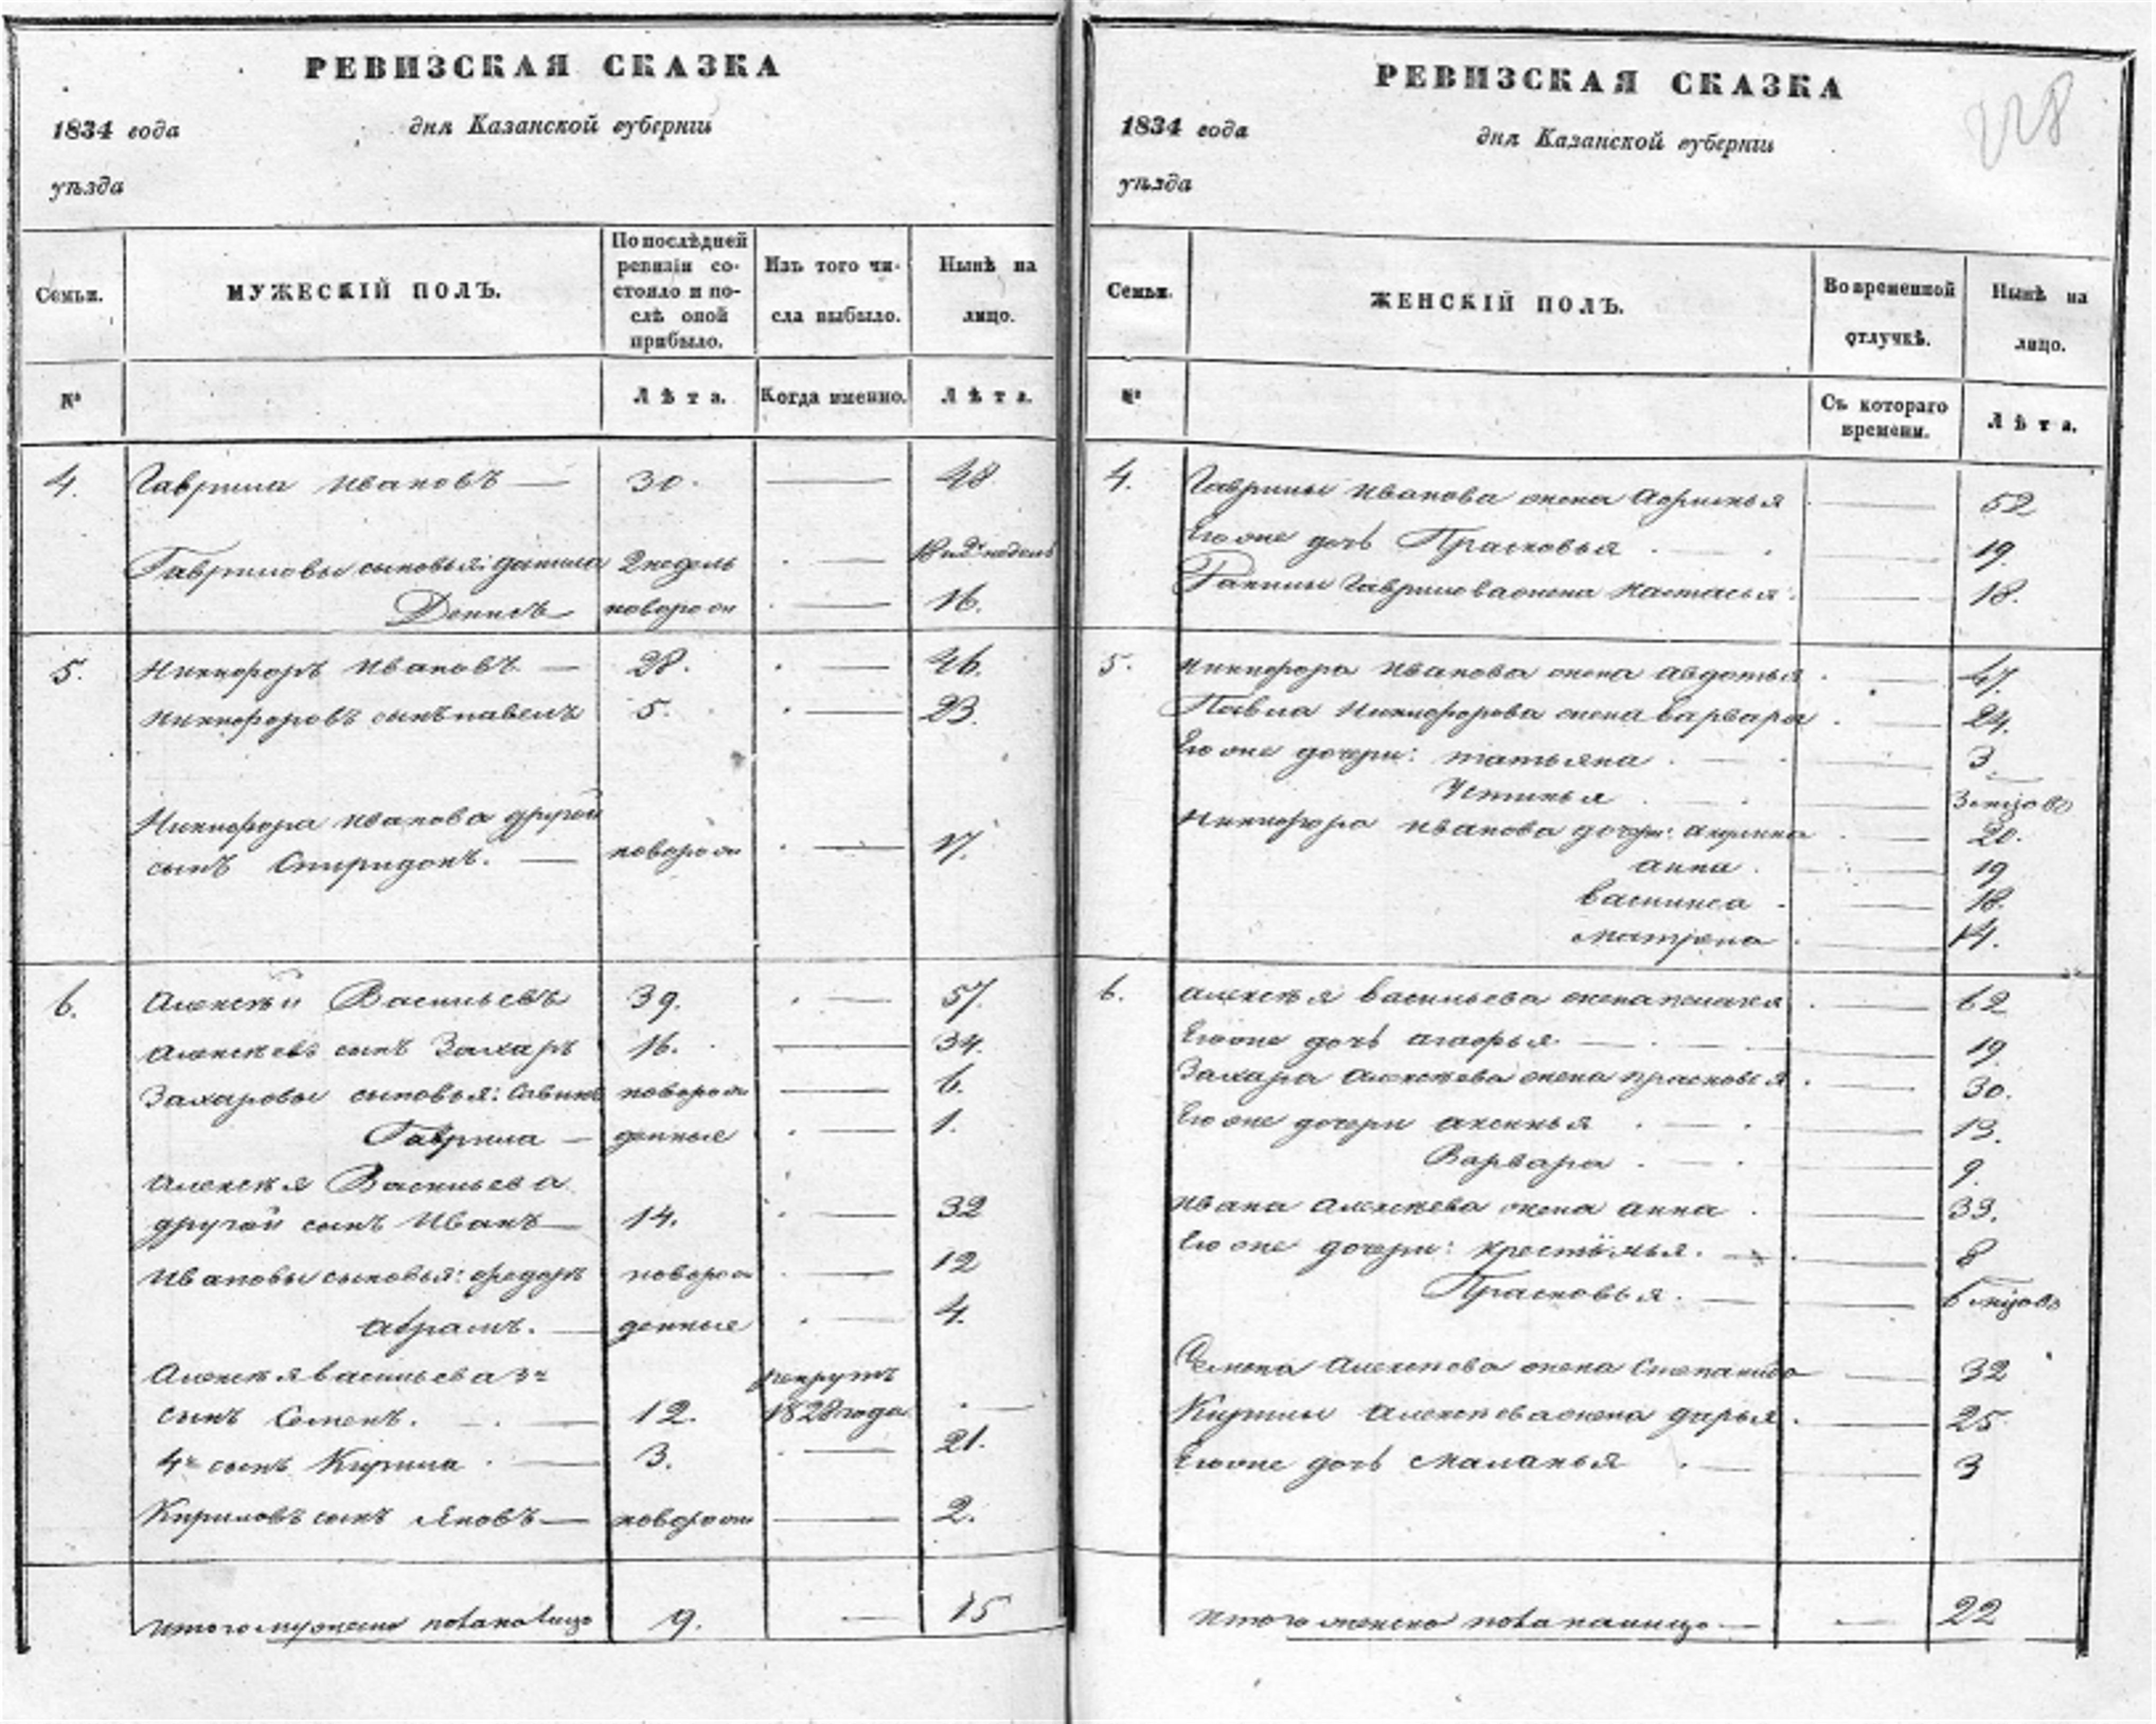 РЕВИЗСКАЯ СКАЗКА
1834 года дня Казанской губернiи
уѣзда
Семьи. МУЖЕСКIЙ ПОЛЪ. По послѣдней ревизiи состояло и послѣ оной прибыло. Изъ того числа выбыло. Нынѣ на лицо.
№ Лѣта. Когда именно. Лѣта.
4. Гаврила Ивановъ — 30. — 48
Гавриловы сыновья: Данила 2 недель — 18 и 2 недель
Денисъ новорож — 16.
5. Никифоръ Ивановъ — 28. — 46.
Никифоровъ сынъ Павелъ 5. — 23.
Никифора Иванова другой
сынъ Спиридонъ. — новорож — 17.
6. Алексѣй Васильевъ 39. — 57
Алексѣевъ сынъ Захаръ 16. — 34.
Захаровы сыновья: Савинъ новорож — 6.
Гаврила — денные — 1.
Алексѣя Васильева
другой сынъ Иванъ — 14. — 32
Ивановы сыновья: Федоръ новорож — 12
Абрамъ. — денные — 4.
Алексѣя Васильева 3й
сынъ Семенъ. 12. рекрутъ 1828 года —
4й сынъ Кирила — 3. — 21.
Кириловъ сынъ Яковъ — новорож — 2.
Итого мужеска пола на лицо 9. — 15
РЕВИЗСКАЯ СКАЗКА
1834 года дня Казанской губернiи
уѣзда
Семьи. ЖЕНСКIЙ ПОЛЪ. Во временной отлучкѣ. Нынѣ на лицо.
№ Съ котораго времени. Лѣта.
4. Гаврилы Иванова жена — 52
Его же дочь Прасковья — 19.
Данилы Гаврилова жена Настасья. — 18.
5. Никифора Иванова жена Авдотья — 47.
Павла Никифорова жена Варвара — 24.
Его же дочери: Татьяна — 3
Устинья — 3 мѣсяцовъ
Никифора Иванова дочери: Акулина — 20.
Анна — 19
Василиса — 18.
Матрена — 14.
6. Алексѣя Васильева жена Пелагея — 62
Его же дочь — 19.
Захара Алексѣева жена Прасковья — 30.
Его же дочери Аксинья — 13.
Варвара — 9.
Ивана Алексѣева жена Анна — 33.
Его же дочери: — 8
Прасковья. — 6 мѣсяцовъ
Семена Алексѣева жена Степанида — 32
Кирилы Алексѣева жена Дарья. — 25
Его же дочь Маланья — 3
Итого женска пола на лицо — 22